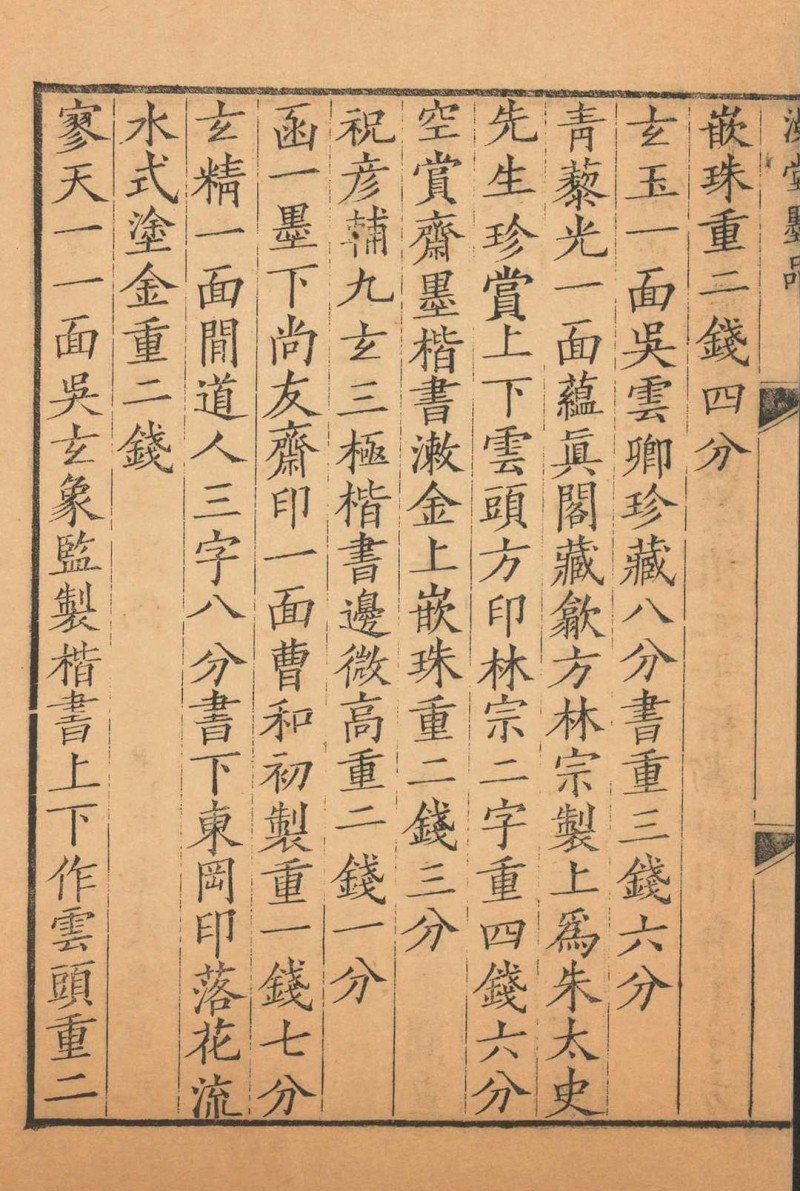 漫堂墨品
嵌珠重二錢四分
玄玉一面吳雲卿珍藏八分書重三錢六分
青藜光一面蘊眞閣藏歙方林宗製上爲朱太史
先生珍賞上下雲頭方印林宗二字重四錢六分
空賞齋墨楷書漱金上嵌珠重二錢三分
祝彦輔九玄三極楷書邊微高重二錢一分
函一墨下尚友齋印一面曹和初製重一錢七分
玄精一面閒道人三字八分書下東岡印落花流
水式塗金重二錢
寥天一一面吳玄象監製楷書上下作雲頭重二